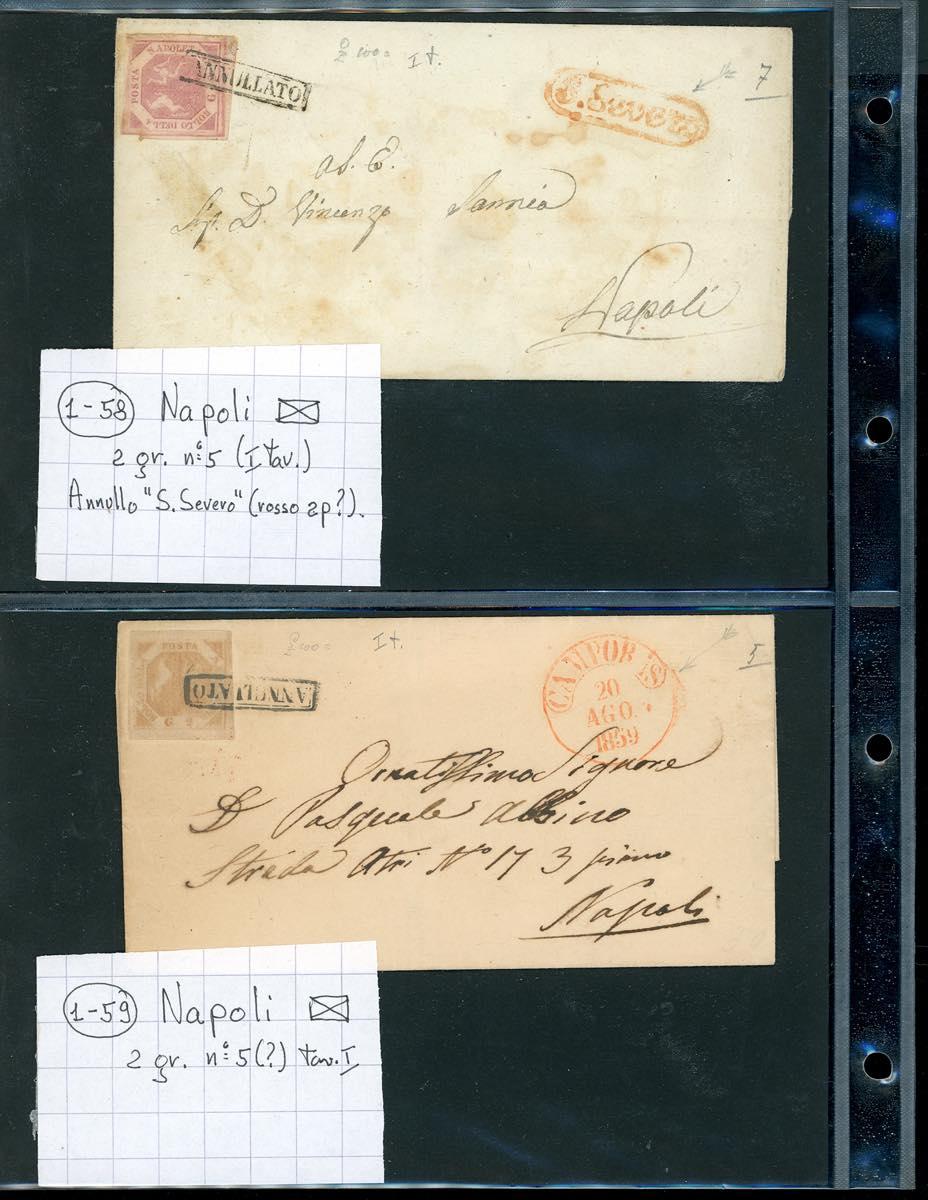 POSTA NAPOLETANA
BOLLO DELLA
G
ANNULLATO
£ 100=
I t.
7
S. Severo
A S. E.
Sig. D. Vincenzo Sannia
Napoli
1-58 Napoli
2 gr. nº 5 (I tav.)
Annullo "S. Severo" (rosso 2p?).
POSTA
G 2
ANNULLATO
£ 100=
I t.
5
CAMPOBAS
20
AGO.
1859
Ornatissimo Signore
D Pasquale Albino
Strada Atri Nº 17 3 piano
Napoli
1-59 Napoli
2 gr. nº 5 (?) tav. I